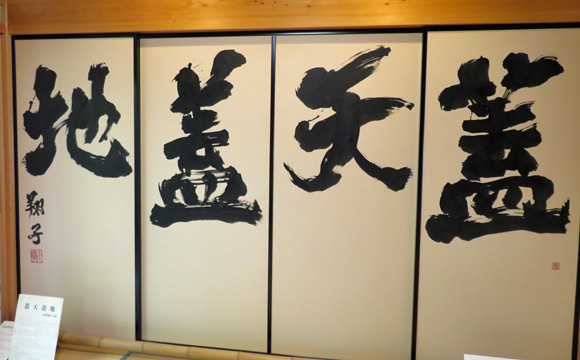 蓋天蓋地
翔子
蓋天蓋地